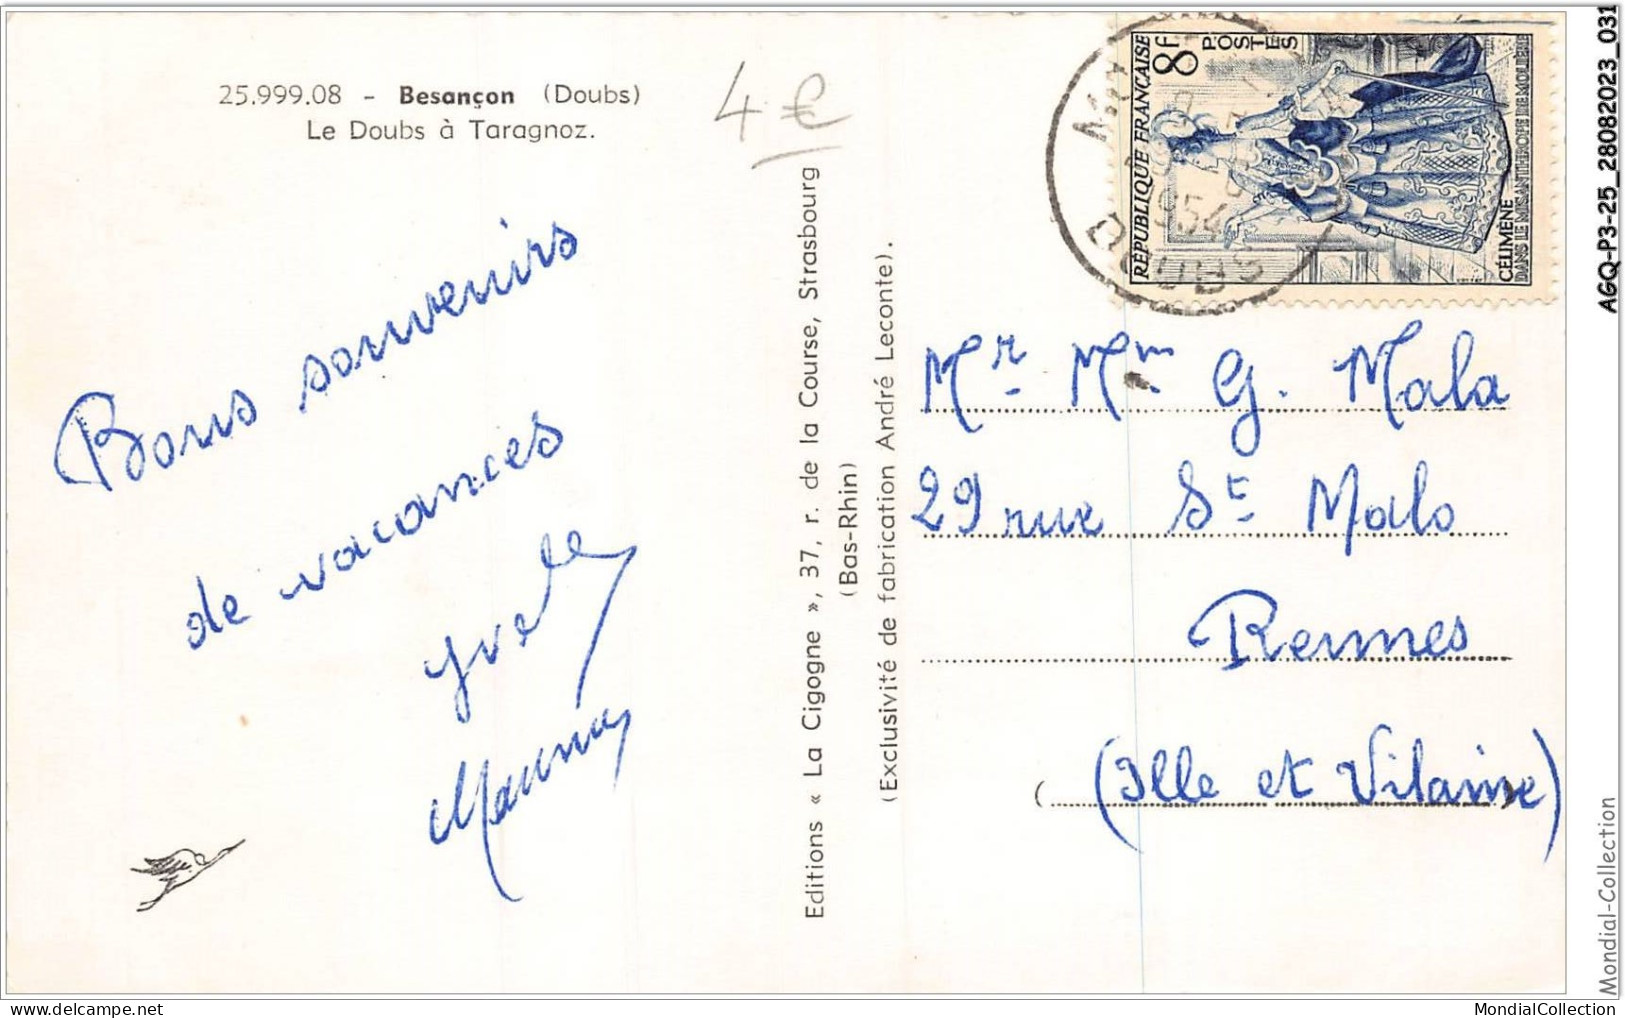 25.999.08 - Besançon (Doubs)
Le Doubs à Taragnoz.
4 €
Bons souvenirs
de vacances
Yvette
Editions « La Cigogne », 37, r. de la Course, Strasbourg
(Bas-Rhin)
(Exclusivité de fabrication André Leconte).
RÉPUBLIQUE FRANÇAISE
8F
POSTES
CÉLIMÈNE
DANS LE MISANTHROPE DE MOLIÈRE
1954
DOUBS
Mr Mm G. Mala
29 rue St Malo
Rennes
(Ille et Vilaine)
AGQ-P3-25_28082023_031
Mondial-Collection
MondialCollection